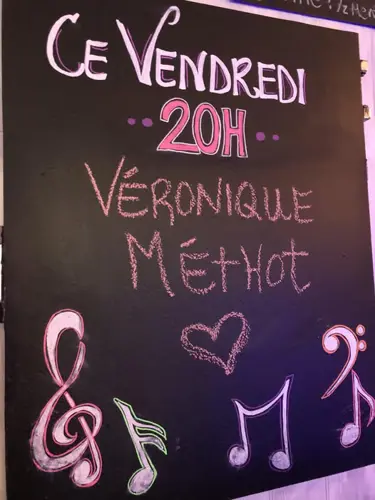 CE VENDREDI
20H
VÉRONIQUE
MÉtHOt